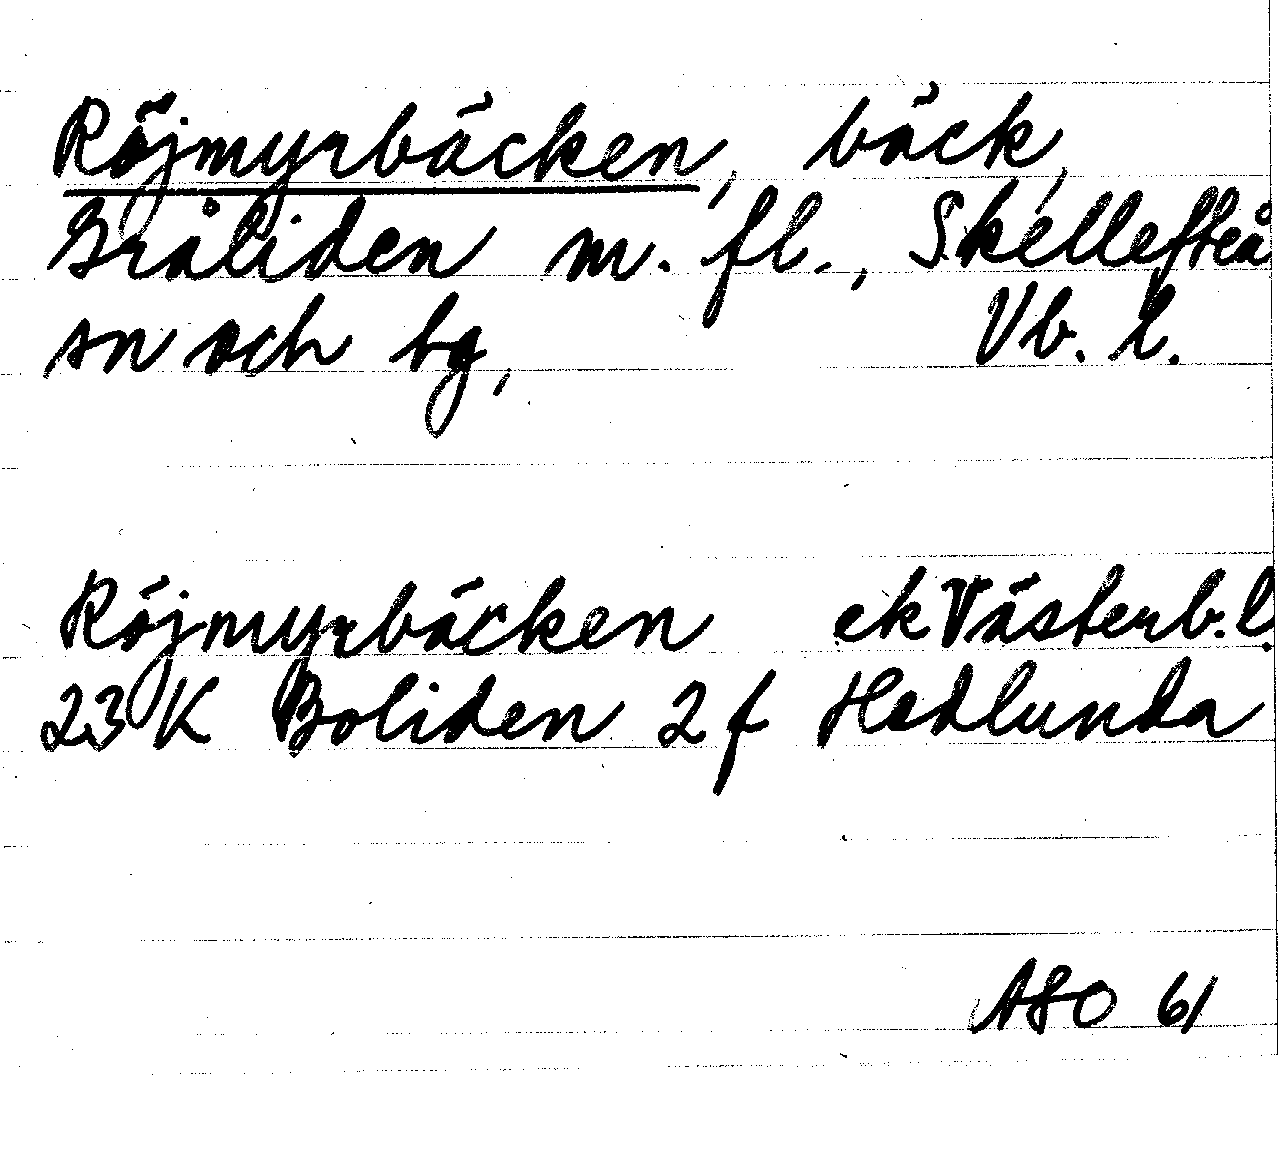 Röjmyrbäcken, bäck,
Gråliden m. fl., Skellefteå
sn och bg, Vb. l.
Röjmyrbäcken ek Västerb. l.
23 K Boliden 2 f Hedlunda
ASO 61